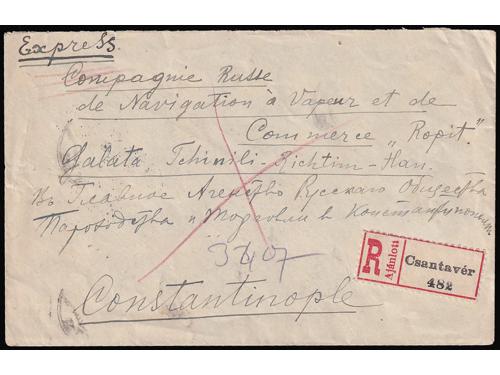 Express.
Compagnie Russe
de Navigation à Vapeur et de
Commerce „Ropit".
Galata, Tchinili-Richtim-Han.
Въ Главное Агенство Русскаго Общества
Пароходства и Торговли в Константинополѣ
Constantinople
R
Ajánlott
Csantavér
482